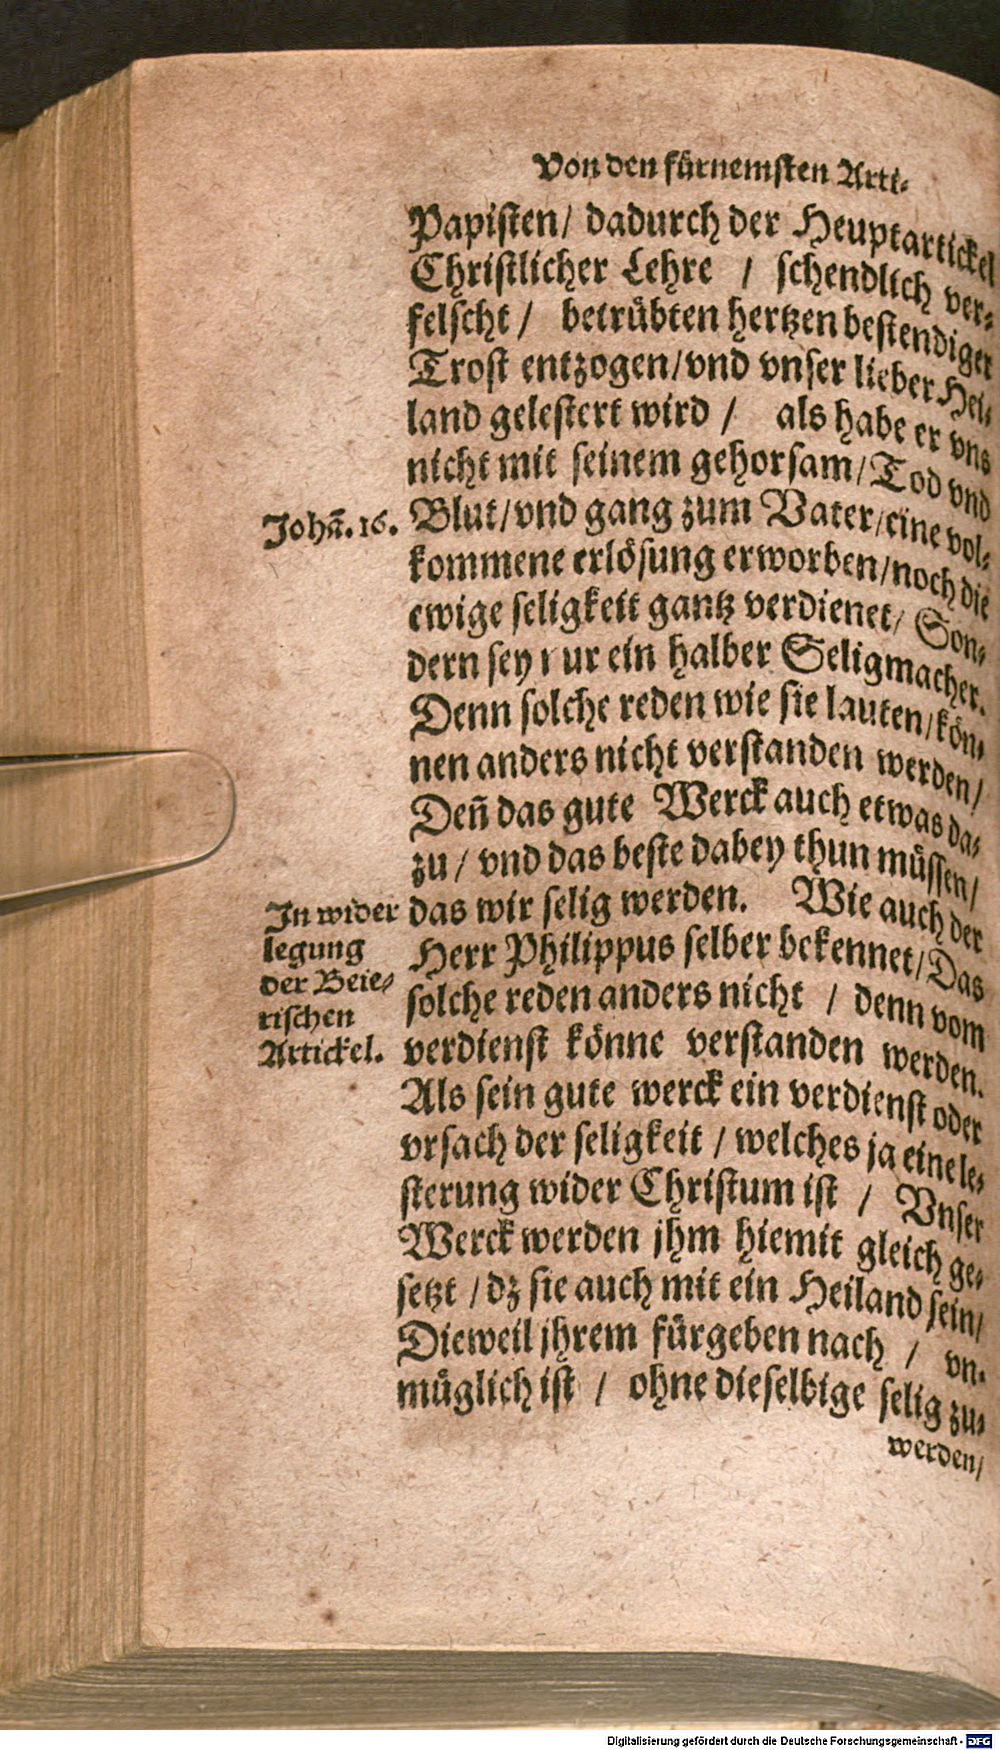 Von den fürnemsten Arti-
Papisten/ dadurch der Heuptartickel
Christlicher Lehre / schendlich ver-
felscht / betrübten hertzen bestendiger
Trost entzogen/vnd vnser lieber Hei-
land gelestert wird / als habe er vns
nicht mit seinem gehorsam/Tod vnd
Johā. 16.
Blut/vnd gang zum Vater/eine vol-
kommene erlösung erworben/noch die
ewige seligkeit gantz verdienet/ Son-
dern sey nur ein halber Seligmacher.
Denn solche reden wie sie lauten/kön-
nen anders nicht verstanden werden/
Deñ das gute Werck auch etwas da-
zu / vnd das beste dabey thun müssen/
das wir selig werden. Wie auch der
In wider
legung
der Beie-
rischen
Artickel.
Herr Philippus selber bekennet/Das
solche reden anders nicht / denn vom
verdienst könne verstanden werden.
Als sein gute werck ein verdienst oder
vrsach der seligkeit / welches ja eine le-
sterung wider Christum ist / Vnser
Werck werden jhm hiemit gleich ge-
setzt / dz sie auch mit ein Heiland sein/
Dieweil jhrem fürgeben nach / vn-
müglich ist / ohne dieselbige selig zu-
werden/
Digitalisierung gefördert durch die Deutsche Forschungsgemeinschaft - DFG